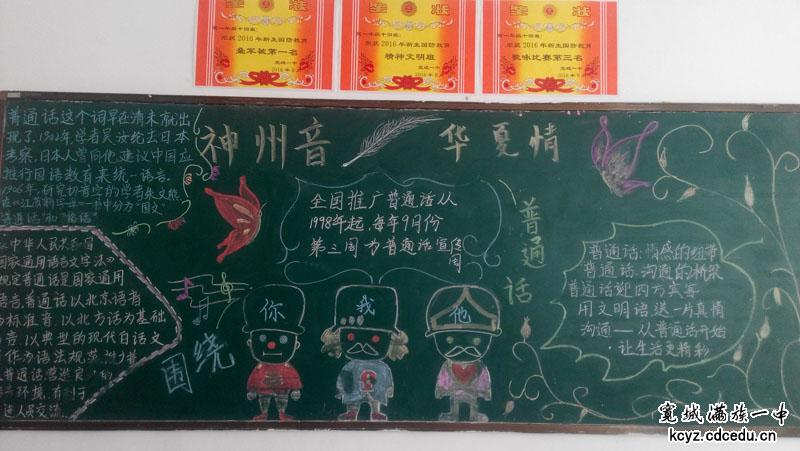 奖状
高一年级十四班:
荣获2016年新生国防教育
叠军被第一名
宽城一中
奖状
高一年级十四班:
荣获2016年新生国防教育
精神文明班
宽城一中
奖状
高一年级十四班:
荣获2016年新生国防教育
趣味比赛第三名
宽城一中
神州音 华夏情
普通话这个词早在清末就出
现了,1902年,学者吴汝纶去日本
考察,日本人曾向他建议中国应
推行国语教育来统一语言。
1906年,研究切音字的学者朱文熊
普通话和
中华人民共和国
国家通用语言文字法》
规定普通话是国家通用
语言普通话以北京语音
为标准音,以北方话为基础
方言,以典型的现代白话文
作为语法规范
全国推广普通话从
1998年起,每年9月份
第三周为普通话宣传
周
普通话
你 我 他
围绕
普通话:情感的纽带
普通话:沟通的桥梁
普通话迎四方宾客
用文明语送一片真情
沟通——从普通话开始
让生活更精彩
宽城满族一中
kcyz.cdcedu.cn